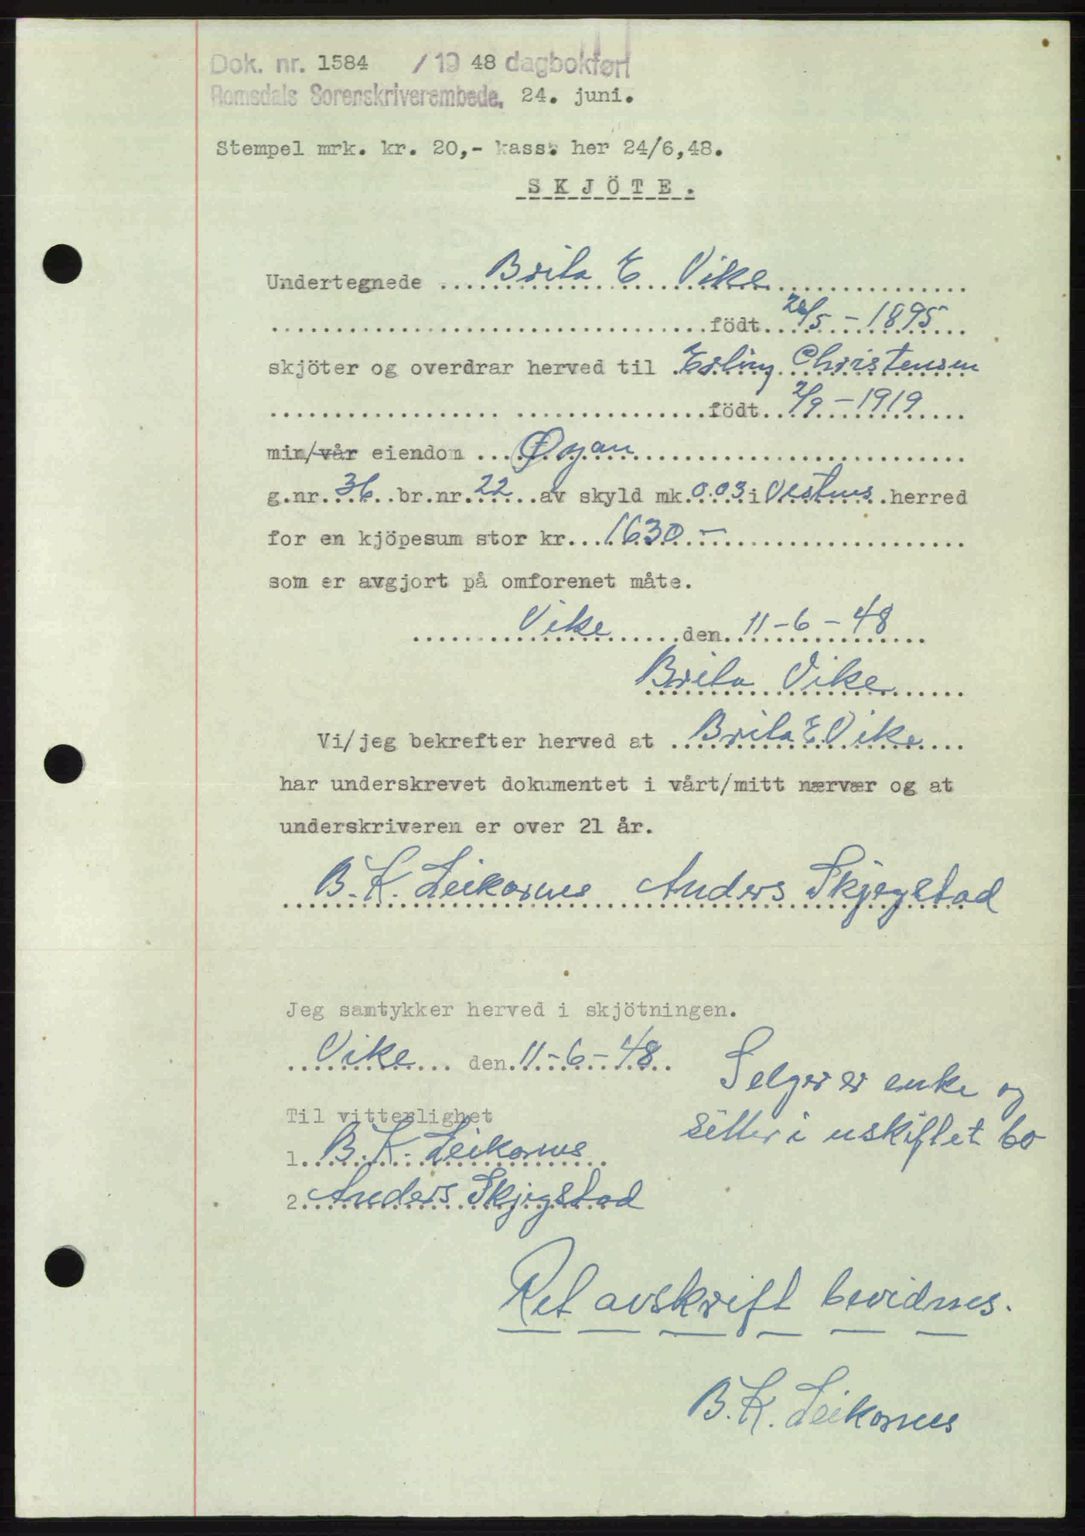 Dok. nr. 1584 / 19 48 dagbokført
Romsdals Sorenskriverembede, 24. juni.
Stempel mrk. kr. 20,- kass. her 24/6,48.
SKJÖTE.
Undertegnede Brita E Vike
födt 26/5 - 1895
skjöter og overdrar herved til Erling Christensen
födt 2/9 - 1919
min/vår eiendom Øyan
g.nr. 36 br.nr. 22 av skyld mk. 0.03 i Vestnes herred
for en kjöpesum stor kr. 1630 -
som er avgjort på omforenet måte.
Vike den 11-6-48
Brita Vike
Vi/jeg bekrefter herved at Brita E Vike
har underskrevet dokumentet i vårt/mitt nærvær og at
underskriveren er over 21 år.
B. K. Leikarnes Anders Skjegstad
Jeg samtykker herved i skjötningen.
Vike den 11-6-48
Selger er enke og
sitter i uskiftet bo
Til vitterlighet
1. B. K. Leikarnes
2. Anders Skjegstad
Ret avskrift bevidnes.
B. K. Leikarnes